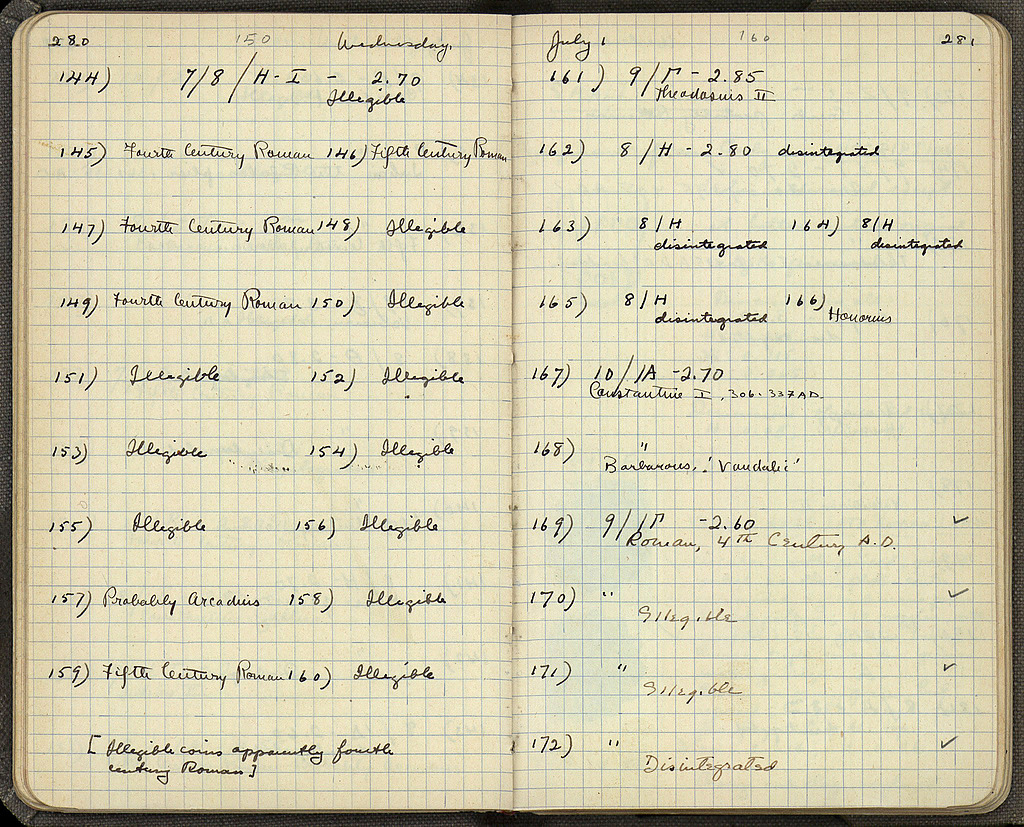 280 150 Wednesday,
144) 7/8 / H-I - 2.70
Illegible
145) Fourth Century Roman 146) Fifth Century Roman
147) Fourth Century Roman 148) Illegible
149) Fourth Century Roman 150) Illegible
151) Illegible 152) Illegible
153) Illegible 154) Illegible
155) Illegible 156) Illegible
157) Probably Arcadius 158) Illegible
159) Fifth Century Roman 160) Illegible
[Illegible coins apparently fourth
century Roman]
July 1 160 281
161) 9/Γ - 2.85
Theodosius II
162) 8/H - 2.80 disintegrated
163) 8/H 164) 8/H
disintegrated disintegrated
165) 8/H 166)
disintegrated Honorius
167) 10//A -2.70
Constantine I, 306-337 A.D.
168) "
Barbarous, 'Vandalic'
169) 9//Γ -2.60 ✓
Roman, 4th Century A.D.
170) " ✓
Illegible
171) " ✓
Illegible
172) " ✓
Disintegrated